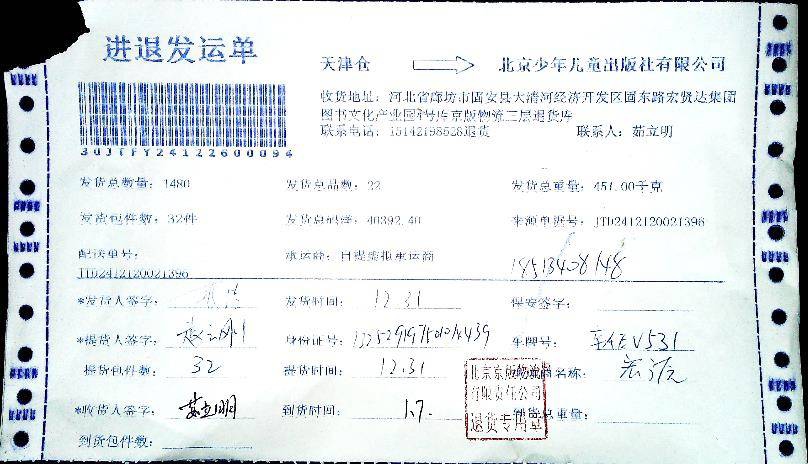 进退发运单
天津仓 北京少年儿童出版社有限公司
收货地址: 河北省廊坊市固安县大清河经济开发区固东路宏贤达集团
图书文化产业园 号库京版物流三层退货库
联系电话: 15142198528退货 联系人: 茹立明
30JTFY24122600094
发货总数量: 1480 发货总品数: 22 发货总重量: 451.00千克
发货包件数: 32件 发货总码洋: 40392.40 来源单据号: JTD2412120021396
配送单号: 承运商: 自提虚拟承运商 18513408148
JTD2412120021396
*发货人签字: 发货时间: 12.31 保安签字:
*提货人签字: 身份证号: 车牌号:
提货包件数: 32 提货时间: 12.31 名称:
北京京版物流
有限责任公司
退货专用章
*收货人签字: 茹立明 到货时间: 1.7. 到货总重量:
到货包件数: